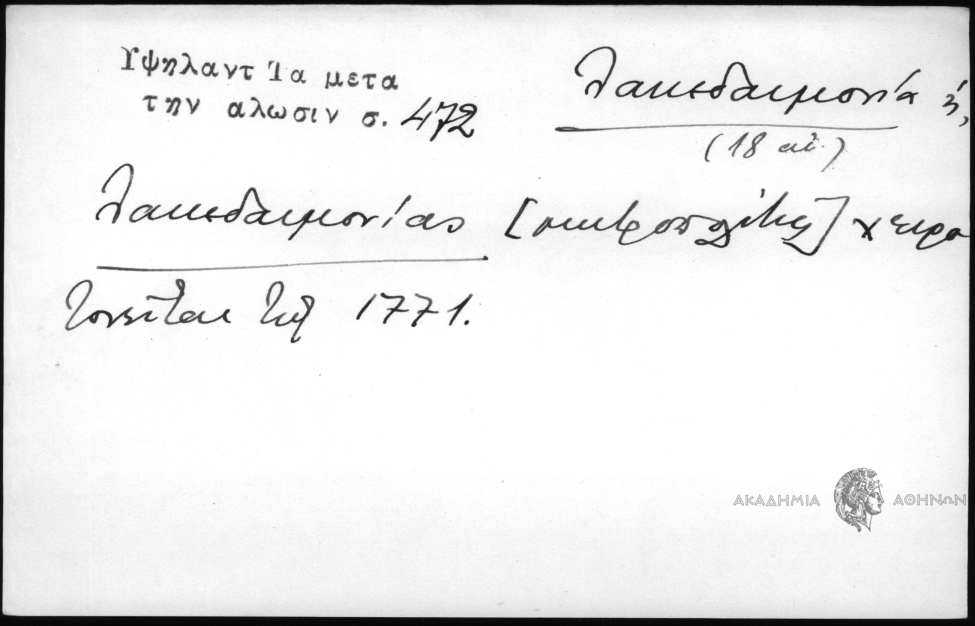 Υψηλαντ Τα μετα
την αλωσιν σ. 472
Λακεδαιμονία ἡ,
(18 αἰ.)
Λακεδαιμονίας [μητροπολίτης] χειρο
τονεῖται τῷ 1771.
ΑΚΑΔΗΜΙΑ ΑΘΗΝΩΝ